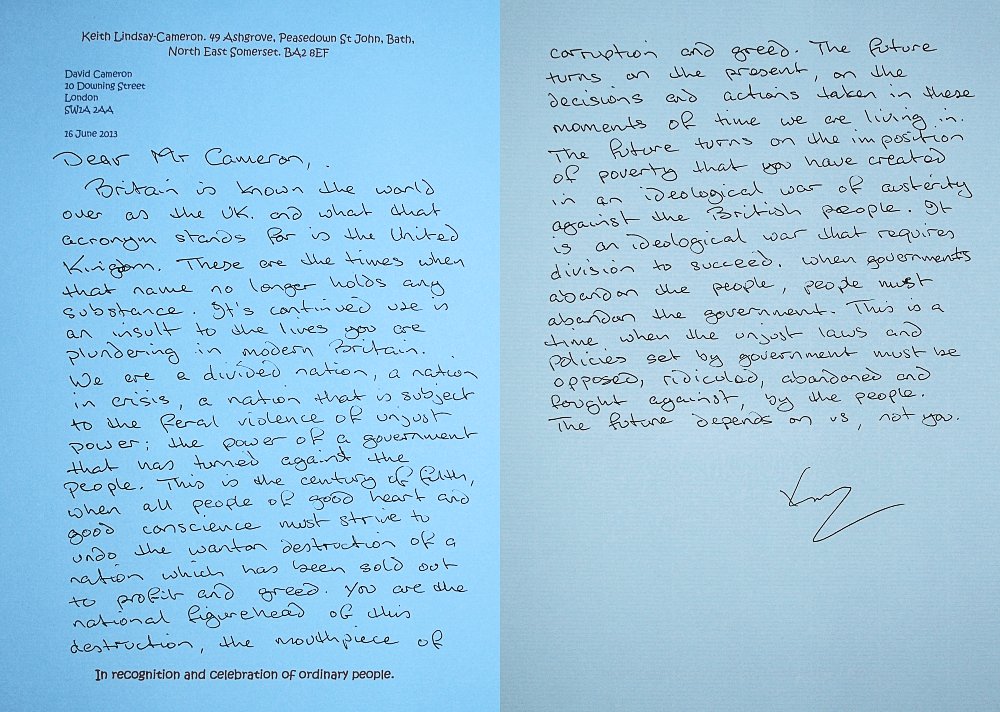 Keith Lindsay-Cameron. 49 Ashgrove, Peasedown St John, Bath,
North East Somerset. BA2 8EF
David Cameron
10 Downing Street
London
SW1A 2AA
16 June 2013
Dear Mr Cameron,
Britain is known the world
over as the UK. and what that
acronym stands for is the United
Kingdom. These are the times when
that name no longer holds any
substance. It's continued use is
an insult to the lives you are
plundering in modern Britain.
We are a divided nation, a nation
in crisis, a nation that is subject
to the feral violence of unjust
power; the power of a government
that has turned against the
people. This is the century of filth,
when all people of good heart and
good conscience must strive to
undo the wanton destruction of a
nation which has been sold out
to profit and greed. You are the
national figurehead of this
destruction, the mouthpiece of
In recognition and celebration of ordinary people.
corruption and greed. The future
turns on the present, on the
decisions and actions taken in these
moments of time we are living in.
The future turns on the imposition
of poverty that you have created
in an ideological war of austerity
against the British people. It
is an ideological war that requires
division to succeed. When governments
abandon the people, people must
abandon the government. This is a
time when the unjust laws and
policies set by government must be
opposed, ridiculed, abandoned and
fought against, by the people.
The future depends on us, not you.